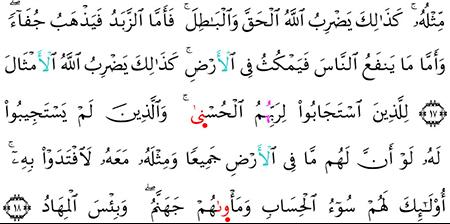 مِّثْلُهُۥ ۚ كَذَٰلِكَ يَضْرِبُ ٱللَّهُ ٱلْحَقَّ وَٱلْبَـٰطِلَ ۚ فَأَمَّا ٱلزَّبَدُ فَيَذْهَبُ جُفَآءً ۖ
وَأَمَّا مَا يَنفَعُ ٱلنَّاسَ فَيَمْكُثُ فِى ٱلْأَرْضِ ۚ كَذَٰلِكَ يَضْرِبُ ٱللَّهُ ٱلْأَمْثَالَ
﴿١٧﴾ لِلَّذِينَ ٱسْتَجَابُوا۟ لِرَبِّهِمُ ٱلْحُسْنَىٰ ۚ وَٱلَّذِينَ لَمْ يَسْتَجِيبُوا۟
لَهُۥ لَوْ أَنَّ لَهُم مَّا فِى ٱلْأَرْضِ جَمِيعًا وَمِثْلَهُۥ مَعَهُۥ لَٱفْتَدَوْا۟ بِهِۦٓ ۚ
أُو۟لَـٰٓئِكَ لَهُمْ سُوٓءُ ٱلْحِسَابِ وَمَأْوَىٰهُمْ جَهَنَّمُ ۖ وَبِئْسَ ٱلْمِهَادُ ﴿١٨﴾